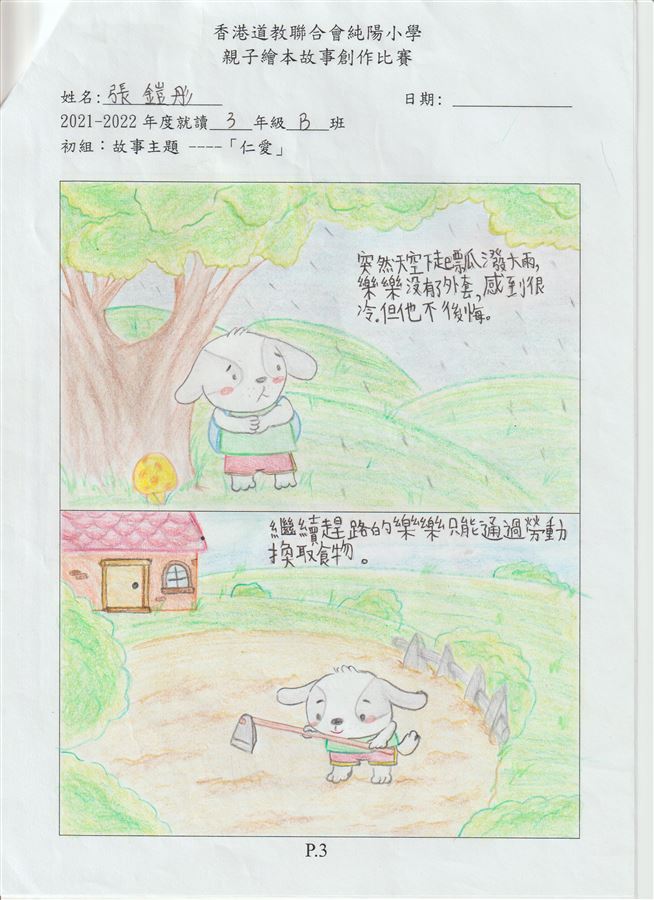 香港道教聯合會純陽小學
親子繪本故事創作比賽
姓名: 張鎧彤 日期:
2021-2022 年度就讀 3 年級 B 班
初組：故事主題 ----「仁愛」
突然天空下起瓢瓜潑大雨,
樂樂沒有了外套,感到很
冷.但他不後悔。
繼續趕路的樂樂只能通過勞動
換取食物。
P.3